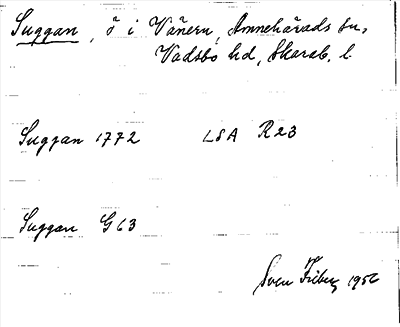 Suggan, ö i Vänern, Amnehärads sn,
Vadsbo hd, Skarab. l.
Suggan 1772 LSA R23
Suggan G63
Sven Friberg 1956